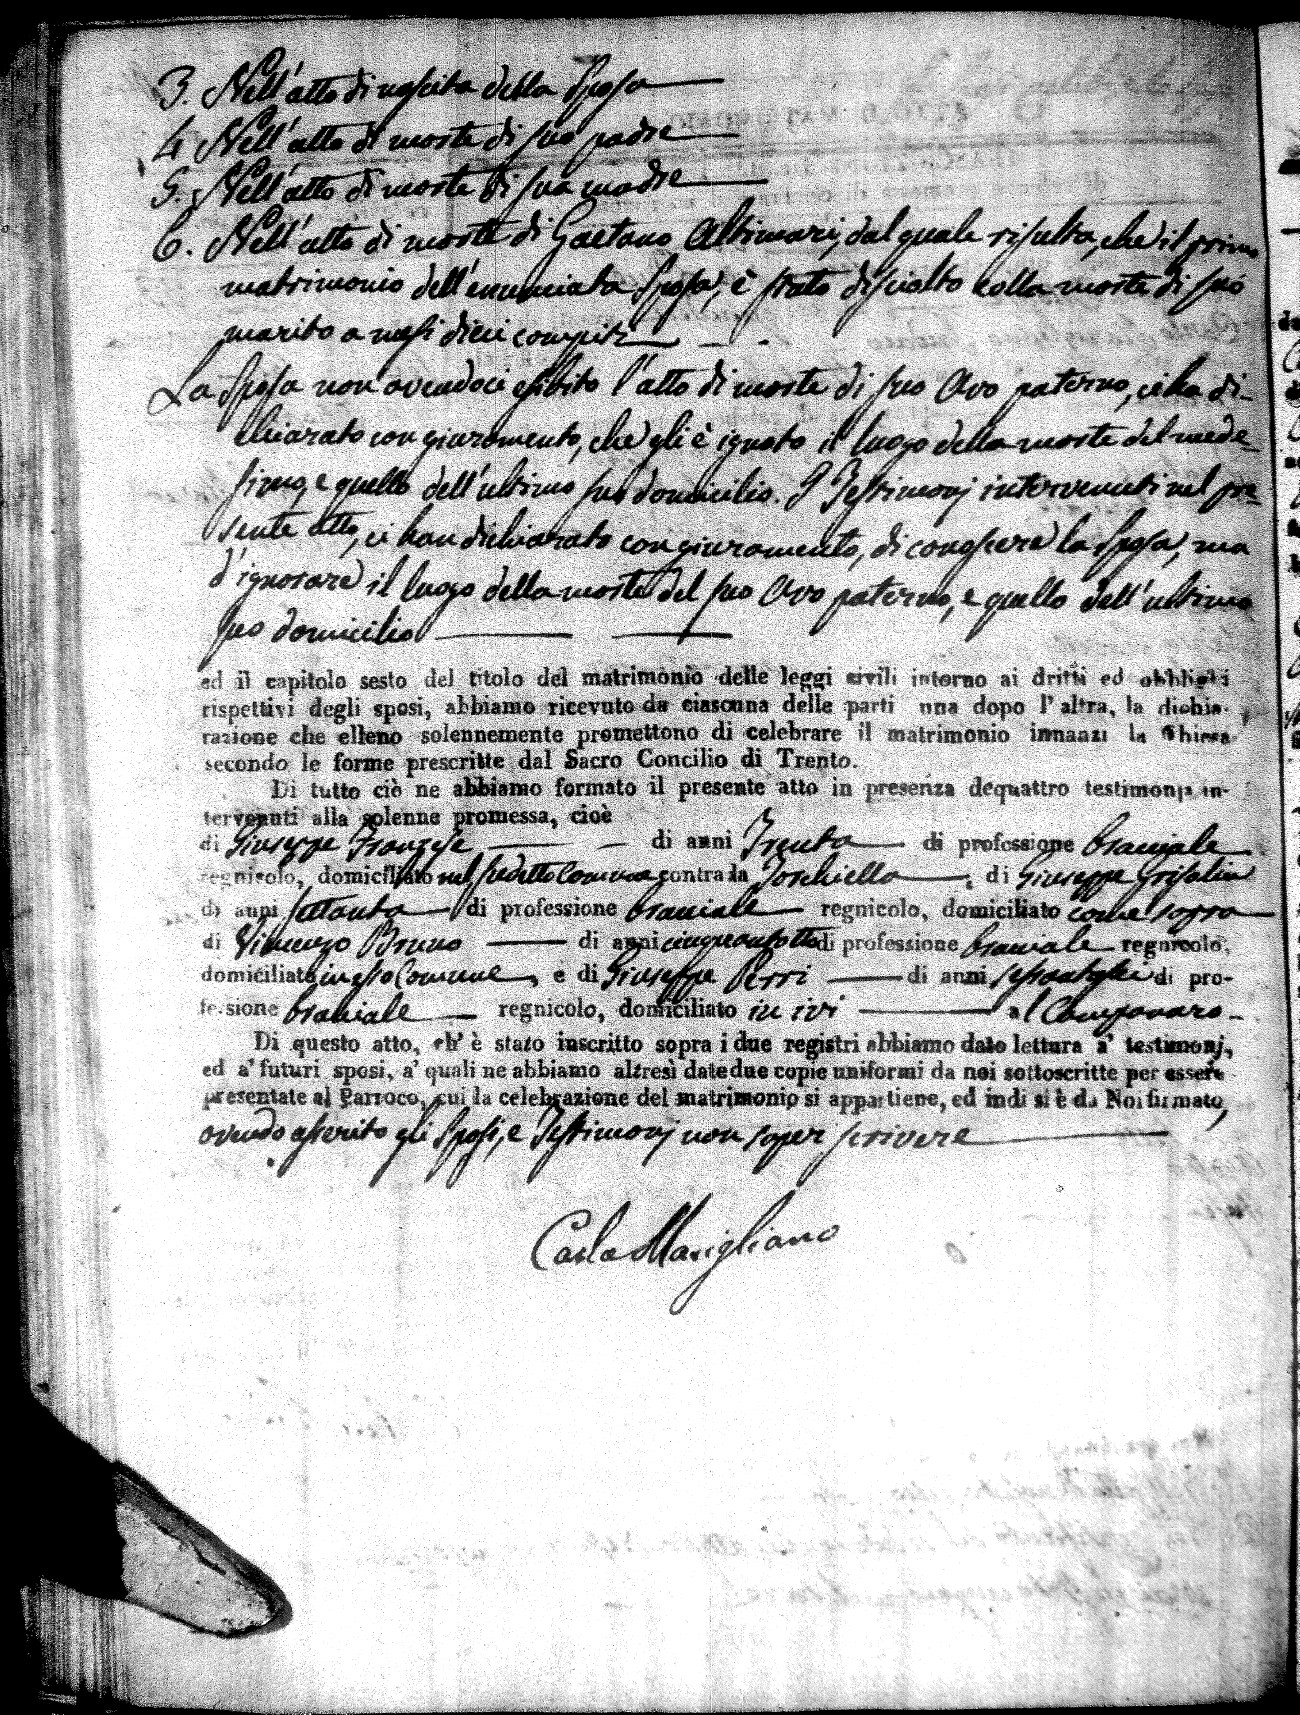 3. Nell'atto di nascita della Sposa
4. Nell'atto di morte di suo padre
5. Nell'atto di morte di sua madre
6. Nell'atto di morte di Gaetano Altimari, dal quale risulta, che il primo
matrimonio dell'enunciata Sposa, è stato disciolto colla morte di suo
marito a mesi dieci compiti
La Sposa non avendoci esibito l'atto di morte di suo Avo paterno, ci ha di-
chiarato con giuramento, che gli è ignoto il luogo della morte del mede-
simo, e quello dell'ultimo suo domicilio. I Testimonj intervenuti nel pre-
sente atto, ci han dichiarato con giuramento, di conoscere la Sposa, ma
d'ignorare il luogo della morte del suo Avo paterno, e quello dell'ultimo
suo domicilio
ed il capitolo sesto del titolo del matrimonio delle leggi civili intorno ai dritti ed obblighi
rispettivi degli sposi, abbiamo ricevuto da ciascuna delle parti una dopo l'altra, la dichia-
razione che elleno solennemente promettono di celebrare il matrimonio innanzi la Chiesa
secondo le forme prescritte dal Sacro Concilio di Trento.
Di tutto ciò ne abbiamo formato il presente atto in presenza dequattro testimonj in-
tervenuti alla solenne promessa, cioè
di Giuseppe Franzese di anni Trenta di professione bracciale
regnicolo, domiciliato nel suddetto Comune contrada , di Giuseppe Grisolia
di anni settanta di professione bracciale regnicolo, domiciliato come sopra
di Vincenzo Bruno di anni cinquantotto di professione bracciale regnicolo,
domiciliato in esso Comune, e di Giuseppe Perri di anni sessantasei di pro-
fessione bracciale regnicolo, domiciliato in ivi al Camponaro
Di questo atto, ch' è stato inscritto sopra i due registri abbiamo dato lettura a' testimonj,
ed a' futuri sposi, a' quali ne abbiamo altresì date due copie uniformi da noi sottoscritte per essere
presentate al Parroco, cui la celebrazione del matrimonio si appartiene, ed indi si è da Noi firmato,
avendo asserito gli Sposi, e Testimonj non saper scrivere
Carlo Marigliano